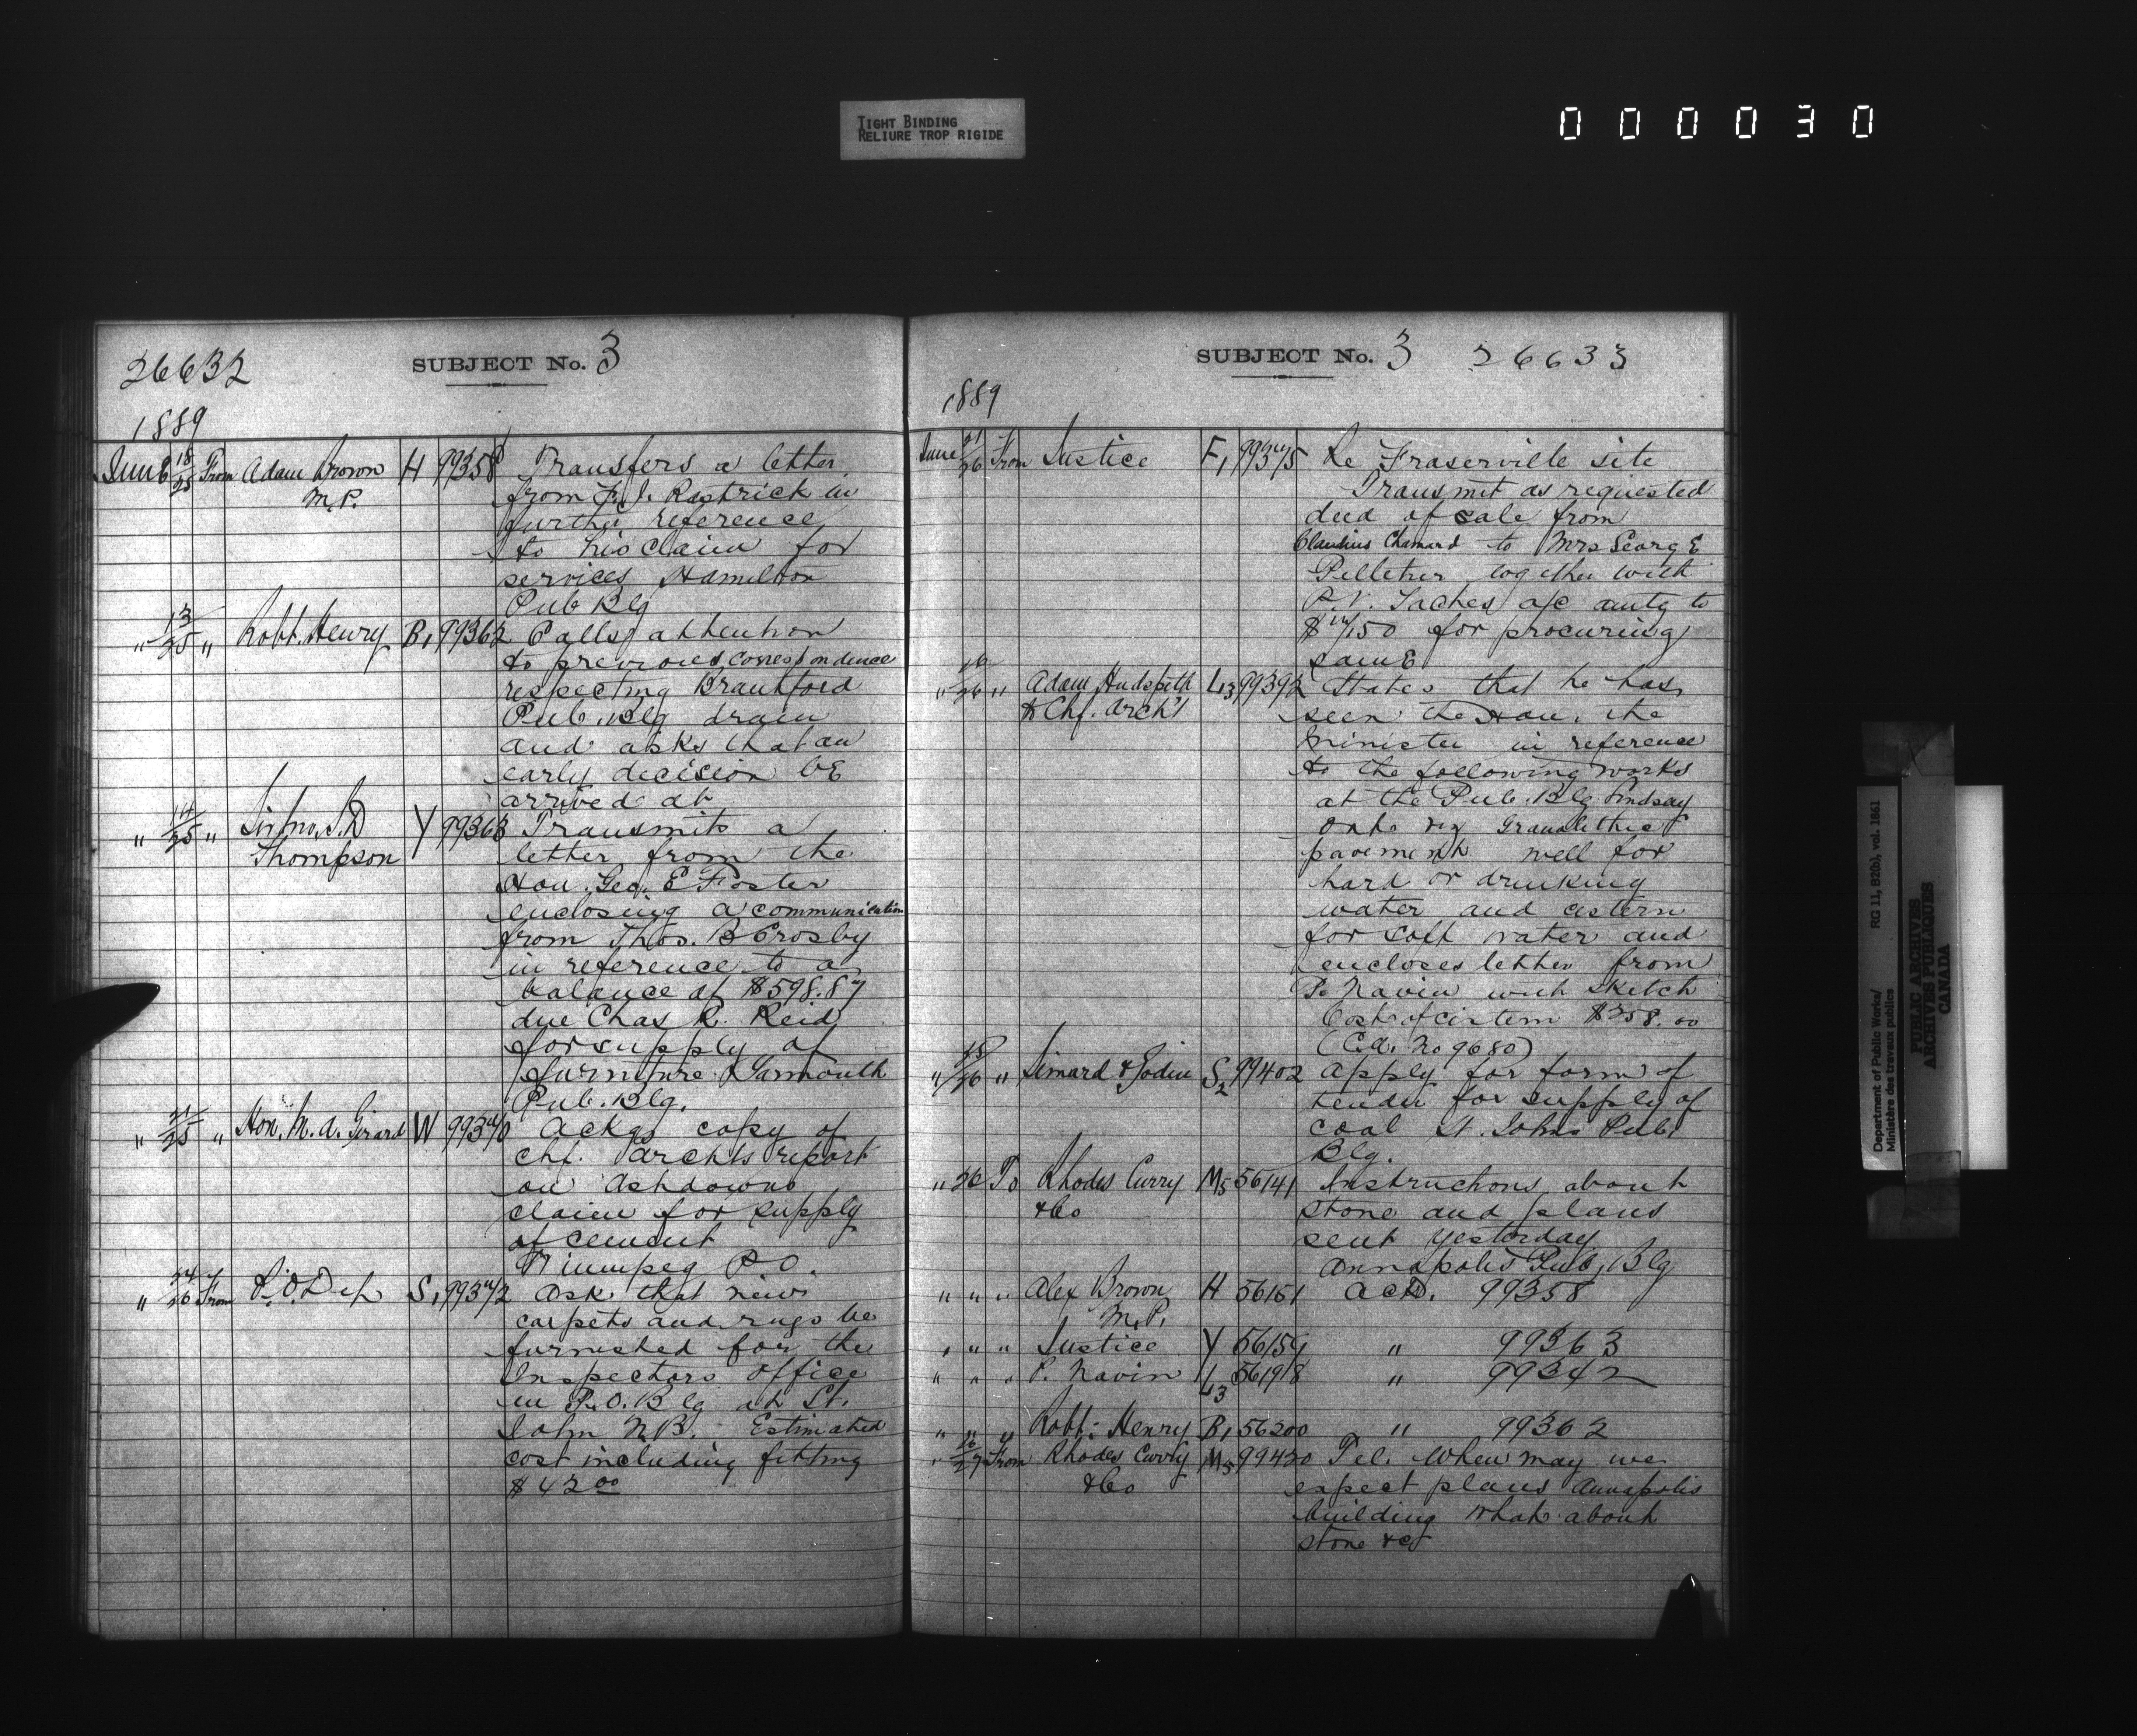 TIGHT BINDING
RELIURE TROP RIGIDE
000030
26632
SUBJECT No. 3
1889
June 18/25 From Adam Brown H 99358 Transfers a letter
M.P. from F. J. Rastrick in
further reference
to his claim for
services Hamilton
Pub Blg
" 13/25 " Robt. Henry B1 99362 Calls attention
to previous correspondence
respecting Brantford
Pub. Blg drain
and asks that an
early decision be
arrived at
" 14/25 " Sir Jno. S. D Y 99363 Transmits a
Thompson letter from the
Hon. Geo. E Foster
enclosing a communication
from Thos. B Crosby
in reference to a
balance of $598.87
due Chas R. Reid
for supply of
furniture Yarmouth
Pub. Blg.
" 21/25 " Hon. M. A. Girard W 99340 Ackgs copy of
Chf. Archts report
on Ashdowns
claim for supply
of cement
Winnipeg P O.
" 24/26 From P. O. Dep S1 99342 Ask that new
carpets and rugs be
furnished for the
Inspectors Office
in P.O. Blg at St.
John N B. Estimated
cost including fitting
$42 00
SUBJECT No. 3 26633
1889
June 21/26 From Justice F1 99375 Re Fraserville site
Transmit as requested
deed of sale from
Claudius Chamard to Mrs George
Pelletier together with
P.V. Taches a/c amtg to
for procuring
same
" 26 " Adam Hudspeth L3 99392 States that he has
to Chf. Archt seen the Hon. the
Minister in reference
to the following works
at the Pub. Blg. Lindsay
Onto viz Granolithic
pavement well for
hard or drinking
water and cistern
for soft water and
encloses letter from
P. Navin with sketch
Cost of cistern $358.00
(C.A. No 9680)
" 25/26 " Simard & Godin S2 99402 Apply for form of
tender for supply of
coal St. Johns Pub.
Blg.
" 26 To Rhodes Curry M5 56141 Instructions about
&Co stone and plans
sent yesterday
Annapolis Pub. Blg
" " " Alex Brown H 56151 Ackd. 99358
M.P.
" " " Justice Y 56159 " 99363
" " " P. Navin L3 56198 " 99342
" " " Robt: Henry B1 56200 " 99362
" 26/27 From Rhodes Curry M5 99420 Tel. When may we
&Co expect plans Annapolis
building What about
stone &c
Department of Public Works/ RG 11, B2(b), vol. 1861
Ministère des travaux publics
PUBLIC ARCHIVES
ARCHIVES PUBLIQUES
CANADA